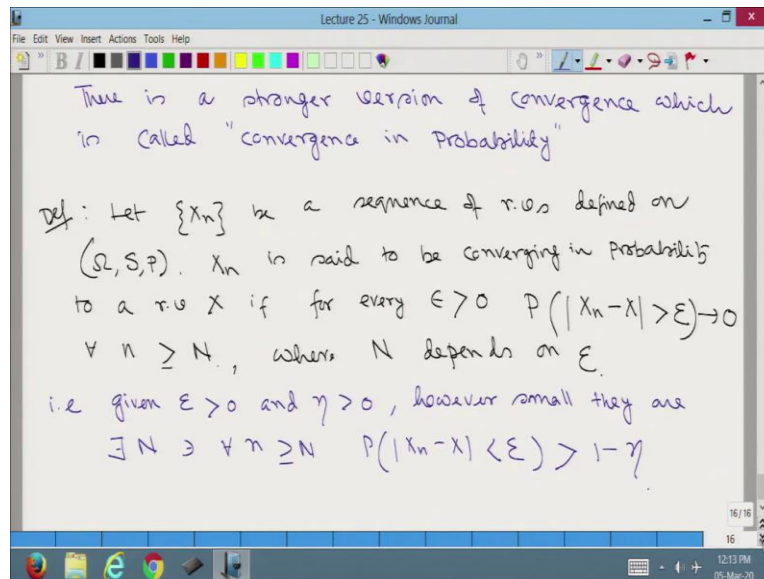 Lecture 25 - Windows Journal
File Edit View Insert Actions Tools Help
There is a stronger version of convergence which
is called "convergence in Probability"
Def: Let {Xn} be a sequence of r.vs defined on
(Ω, S, P). Xn is said to be converging in Probability
to a r.v X if for every ϵ > 0 P(|Xn - X| > ε) → 0
∀ n ≥ N, where N depends on ε.
i.e given ε > 0 and η > 0, however small they are
∃ N ∋ ∀ n ≥ N P(|Xn - X| < ε) > 1 - η.
16/16
16
12:13 PM
05-Mar-20